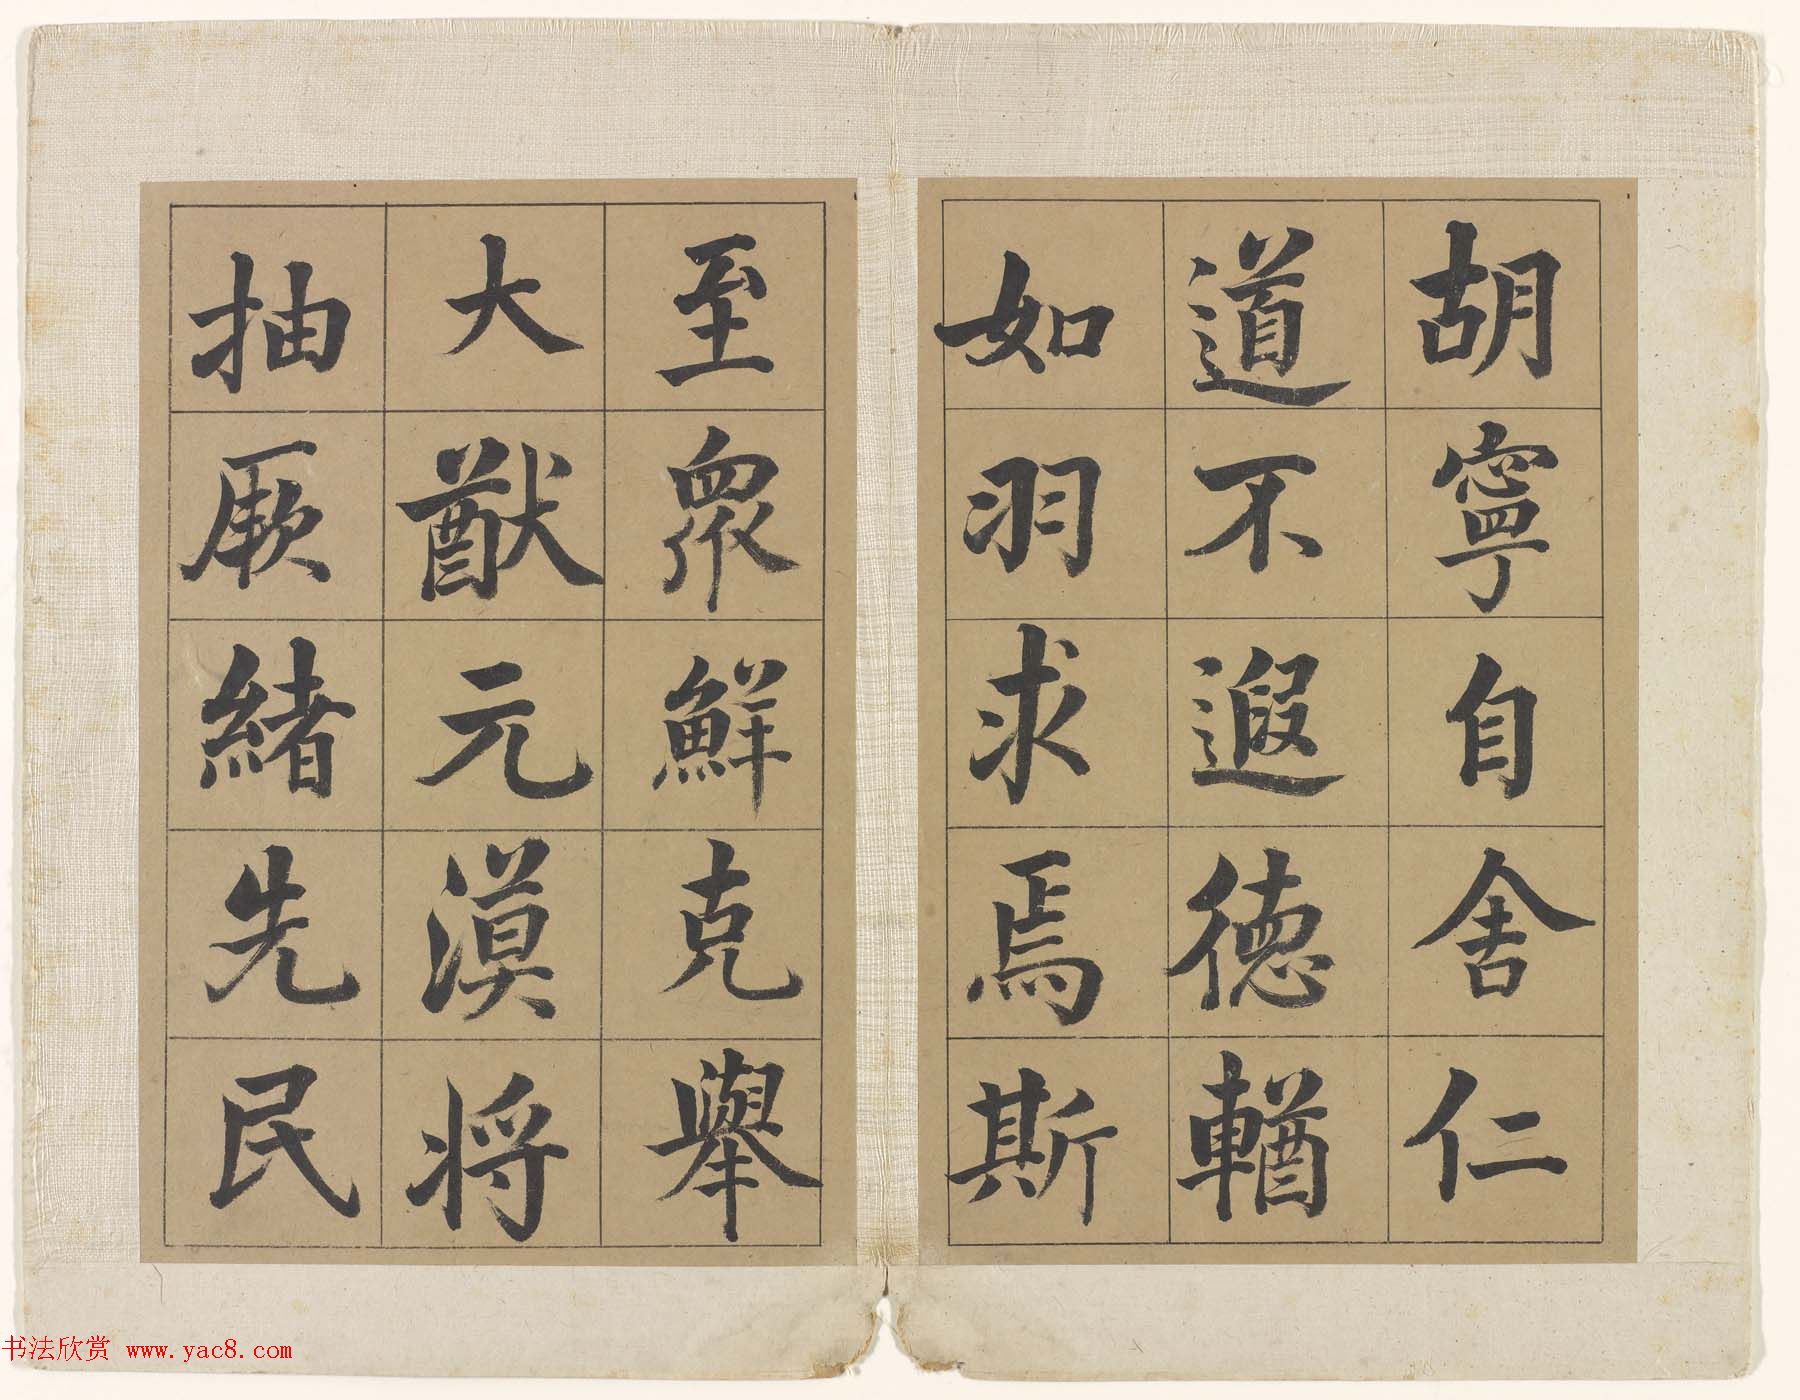 胡寧自舍仁
道不遐德輶
如羽求焉斯
至眾鮮克舉
大猷元漠将
抽厥緒先民
书法欣赏 www.yac8.com